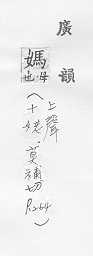 廣韻
媽
母也
(上聲
十姥.莫補切
P.264)